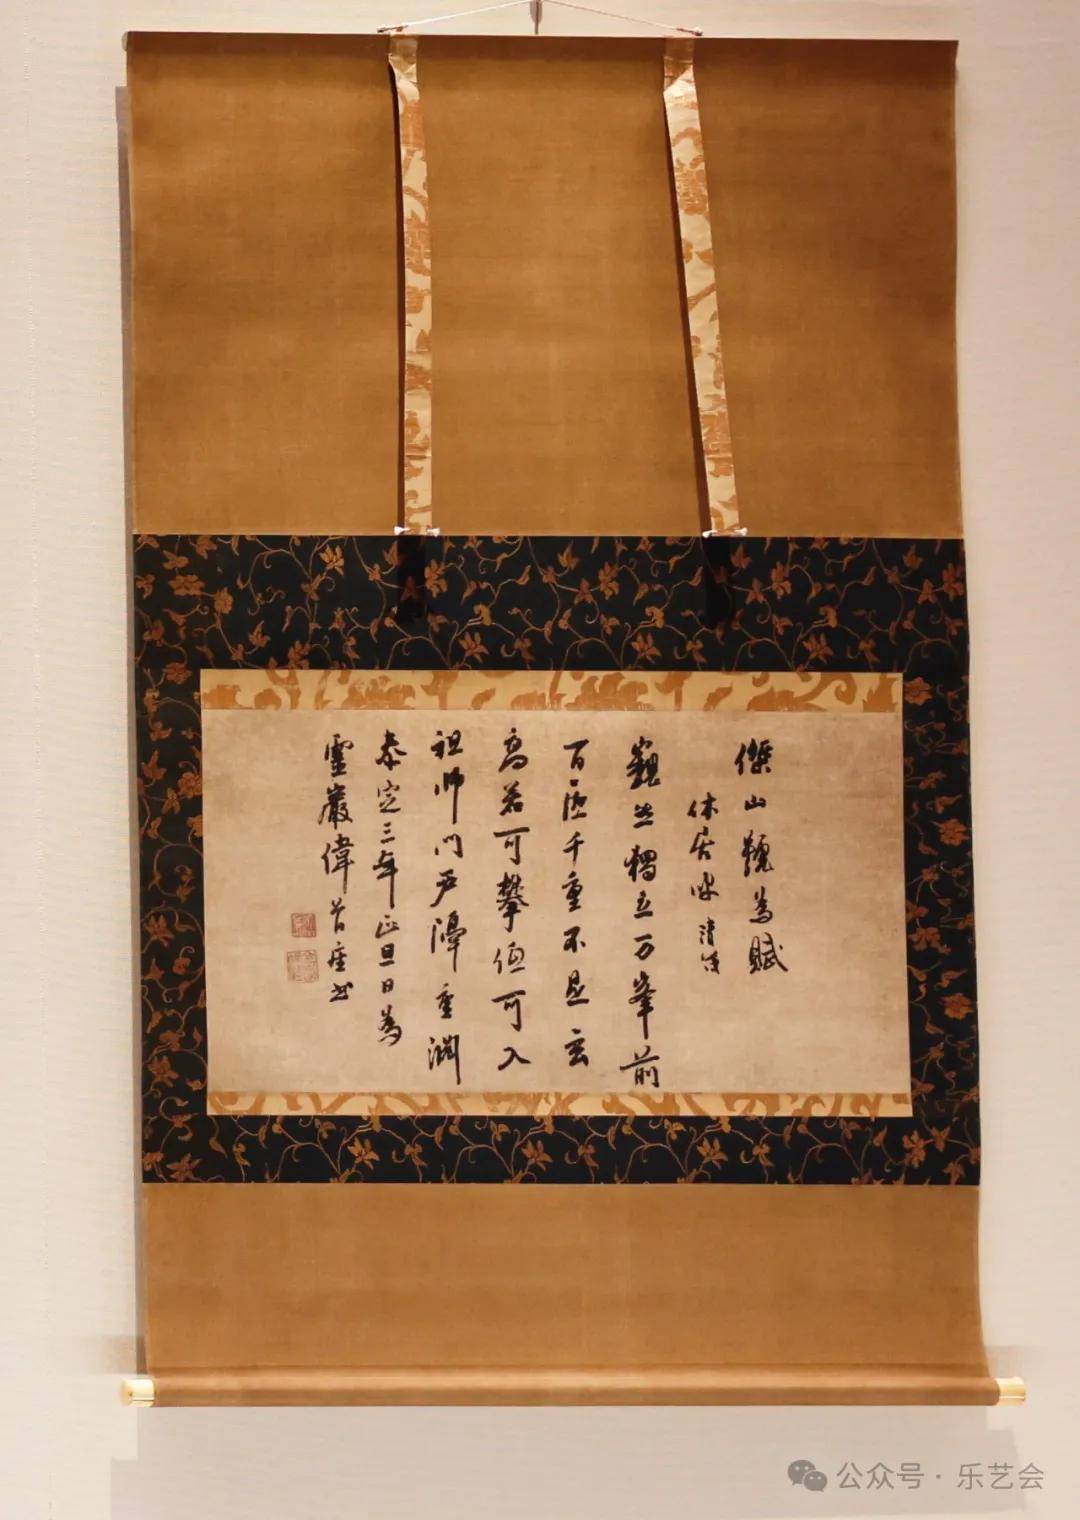 傑山號為賦
休居叟 清茂
巍然獨立万峯前
百匝千重不是玄
高若可攀低可入
祖師門戶隔重淵
泰定三年正旦日為
靈巖偉首座書
公众号·乐艺会